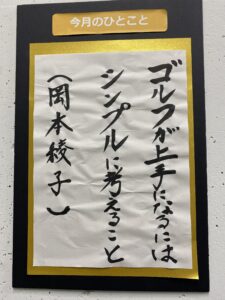 今月のひとこと
ゴルフが上手になるには
シンプルに考えること
(岡本綾子)